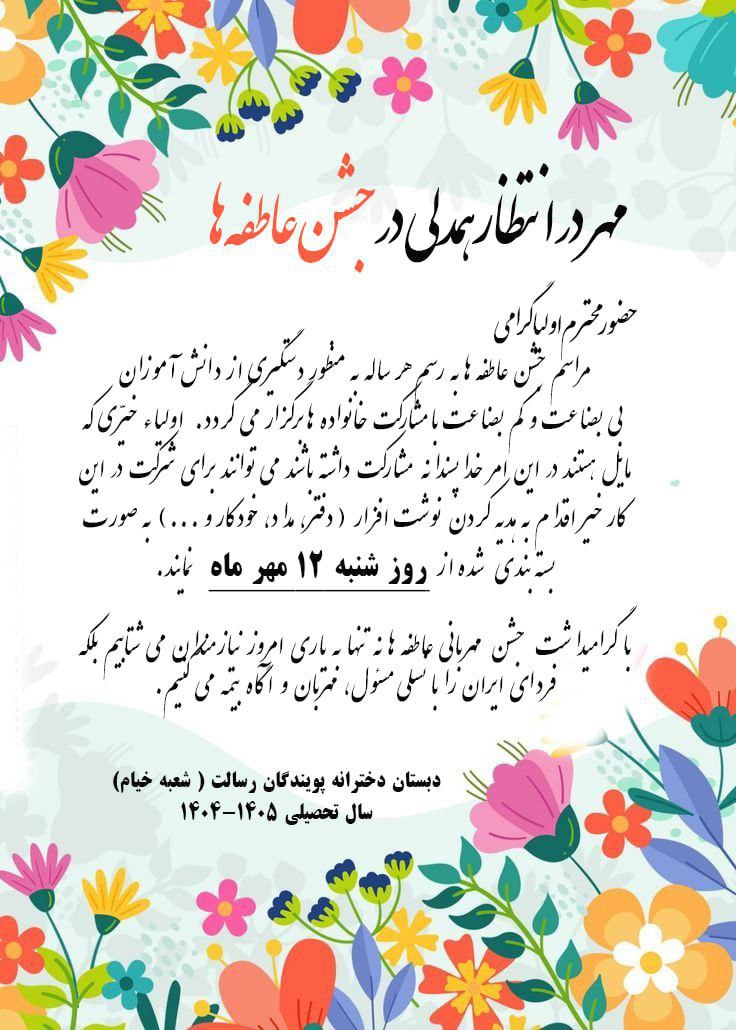 مهر در انتظار همدلی در جشن عاطفه ها
حضور محترم اولیا گرامی
مراسم جشن عاطفه ها به رسم هر ساله به منظور دستگیری از دانش آموزان
بی بضاعت و کم بضاعت با مشارکت خانواده ها برگزار می گردد. اولیاء خیّری که
مایل هستند در این امر خداپسندانه مشارکت داشته باشند می توانند برای شرکت در این
کار خیر اقدام به هدیه کردن نوشت افزار (دفتر، مداد، خودکار و ...) به صورت
بسته بندی شده از روز شنبه ۱۲ مهر ماه نمایند.
با گرامیداشت جشن مهربانی عاطفه ها نه تنها به یاری امروز نیازمندان می شتابیم بلکه
فردای ایران را با نسلی مسئول، مهربان و آگاه بیمه می کنیم.
دبستان دخترانه پویندگان رسالت ( شعبه خیام)
سال تحصیلی ۱۴۰۵-۱۴۰۴